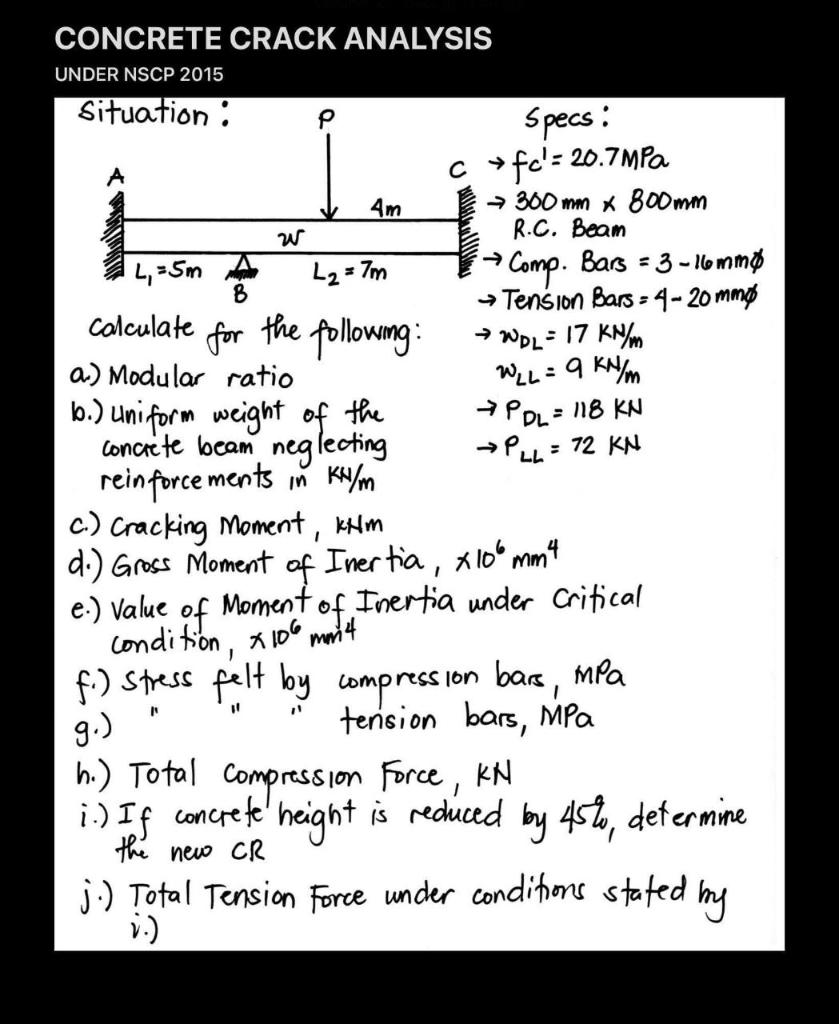 CONCRETE CRACK ANALYSIS
UNDER NSCP 2015
Situation :
P
A
C
4m
w
L₁ = 5m
B
L₂ = 7m
Specs :
→ fc' = 20.7 MPa
→ 300 mm x 800mm
R.C. Beam
→ Comp. Bars = 3 - 16 mmϕ
→ Tension Bars = 4 - 20 mmϕ
→ WDL = 17 KN/m
WLL = 9 KN/m
→ PDL = 118 KN
→ PLL = 72 KN
Calculate for the following:
a.) Modular ratio
b.) Uniform weight of the
concrete beam neglecting
reinforcements in KN/m
c.) Cracking Moment, kNm
d.) Gross Moment of Inertia, x10⁶ mm⁴
e.) Value of Moment of Inertia under Critical
condition, x10⁶ mm⁴
f.) Stress felt by compression bars, MPa
g.) " " " tension bars, MPa
h.) Total Compression Force, KN
i.) If concrete height is reduced by 45%, determine
the new CR
j.) Total Tension Force under conditions stated by
i.)